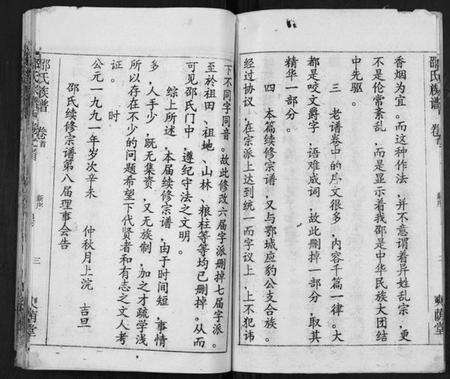 邵氏族谱 卷首
香烟为宜。而这种作法，并不意谓着异姓乱宗，更
不是伦常紊乱，而是显示着我邵是中华民族大团结
中先驱。
三 老谱卷中的序文很多，内容千篇一律。大
都是咬文爵字，语难成词，故此删掉一部分，取其
精华一部分。
四 本篇续修宗谱，又与鄂城应豹公支合族。
经过协议，在宗派上达到统一而字同上，上不犯讳
爽荫堂
下不同字同音。故此修改六届字派删掉七届字派。
至於祖田、祖地、山林、粮柱等等均已删掉。从而
可见邵氏门中，遵纪守法之文明。
综上所述，本届续修宗谱，由于时间短，事情
多，人手少，既无集资，又无族制，加之才疏学浅
所以存在不少的问题希望下代贤者和有志之文人考
证。
时
公元一九九一年岁次辛未 仲秋月上浣 吉旦
邵氏续修宗谱第八届理事会告
邵氏族谱 卷首
三
爽荫堂